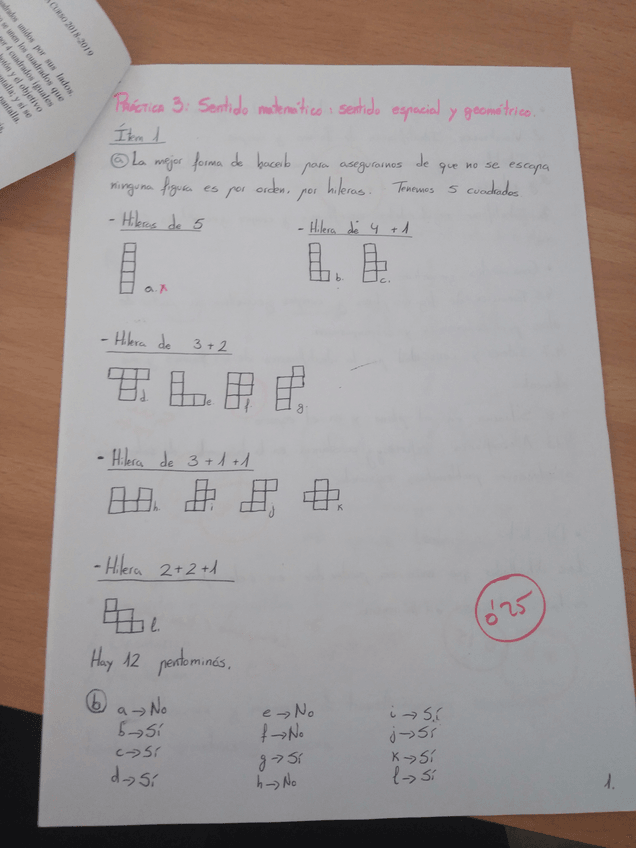 CURSO 2018-2019
cuadrados unidos por sus lados.
Práctica 3: Sentido matemático: sentido espacial y geométrico.
Ítem 1
a La mejor forma de hacerlo para asegurarnos de que no se escapa
ninguna figura es por orden, por hileras. Tenemos 5 cuadrados
- Hileras de 5
- Hilera de 4 + 1
a.
b.
c.
- Hilera de 3 + 2
d
e
f
g
- Hilera de 3 + 1 + 1
h
i
j
k
- Hilera 2 + 2 + 1
l.
0'25
Hay 12 pentominós.
b
a → No
e → No
i → Sí
b → Sí
f → No
j → Sí
c → Sí
g → Sí
k → Sí
d → Sí
h → No
l → Sí
1.